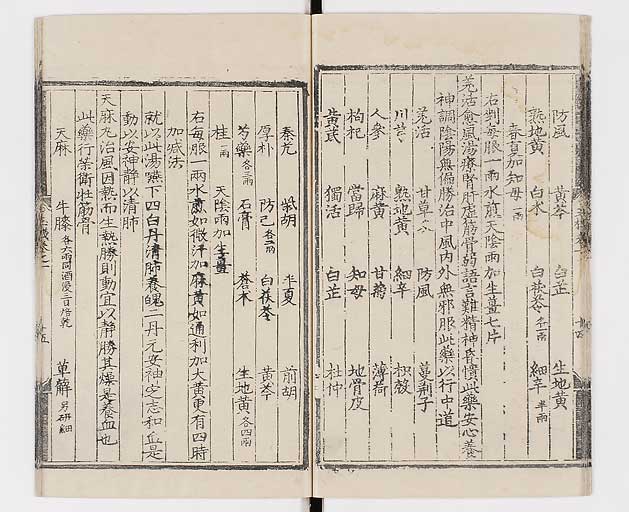 防風 黃芩 白芷 生地黃
熟地黃 白朮 白茯苓各一兩 細辛半兩
春夏加知母一兩
右剉每服一兩水煎天陰雨加生薑七片
羌活愈風湯療腎肝虛筋骨弱語言難精神昏憒此藥安心養
神調陰陽無偏勝治中風內外無邪服此藥以行中道
羌活 甘草 防風 蔓荊子
川芎 熟地黃 細辛 枳殼
人參 麻黃 甘菊 薄荷
枸杞 當歸 知母 地骨皮
黃芪 獨活 白芷 杜仲
秦艽 柴胡 半夏 前胡
厚朴 防己各二兩 白茯苓 黃芩
芍藥各三兩 石膏 蒼朮 生地黃各四兩
桂一兩 天陰雨加生薑
右每服一兩水煎如微汗加麻黃如通利加大黃更有四時
加減法
就以此湯嚥下四白丹清肺養魄二丹元安神定志和血是
動以安神靜以清肺
天麻丸治風因熱而生熱勝則動宜以靜勝其燥是養血也
此藥行榮衛壯筋骨
天麻 牛膝各六兩同酒浸三日焙乾 萆薢另研細